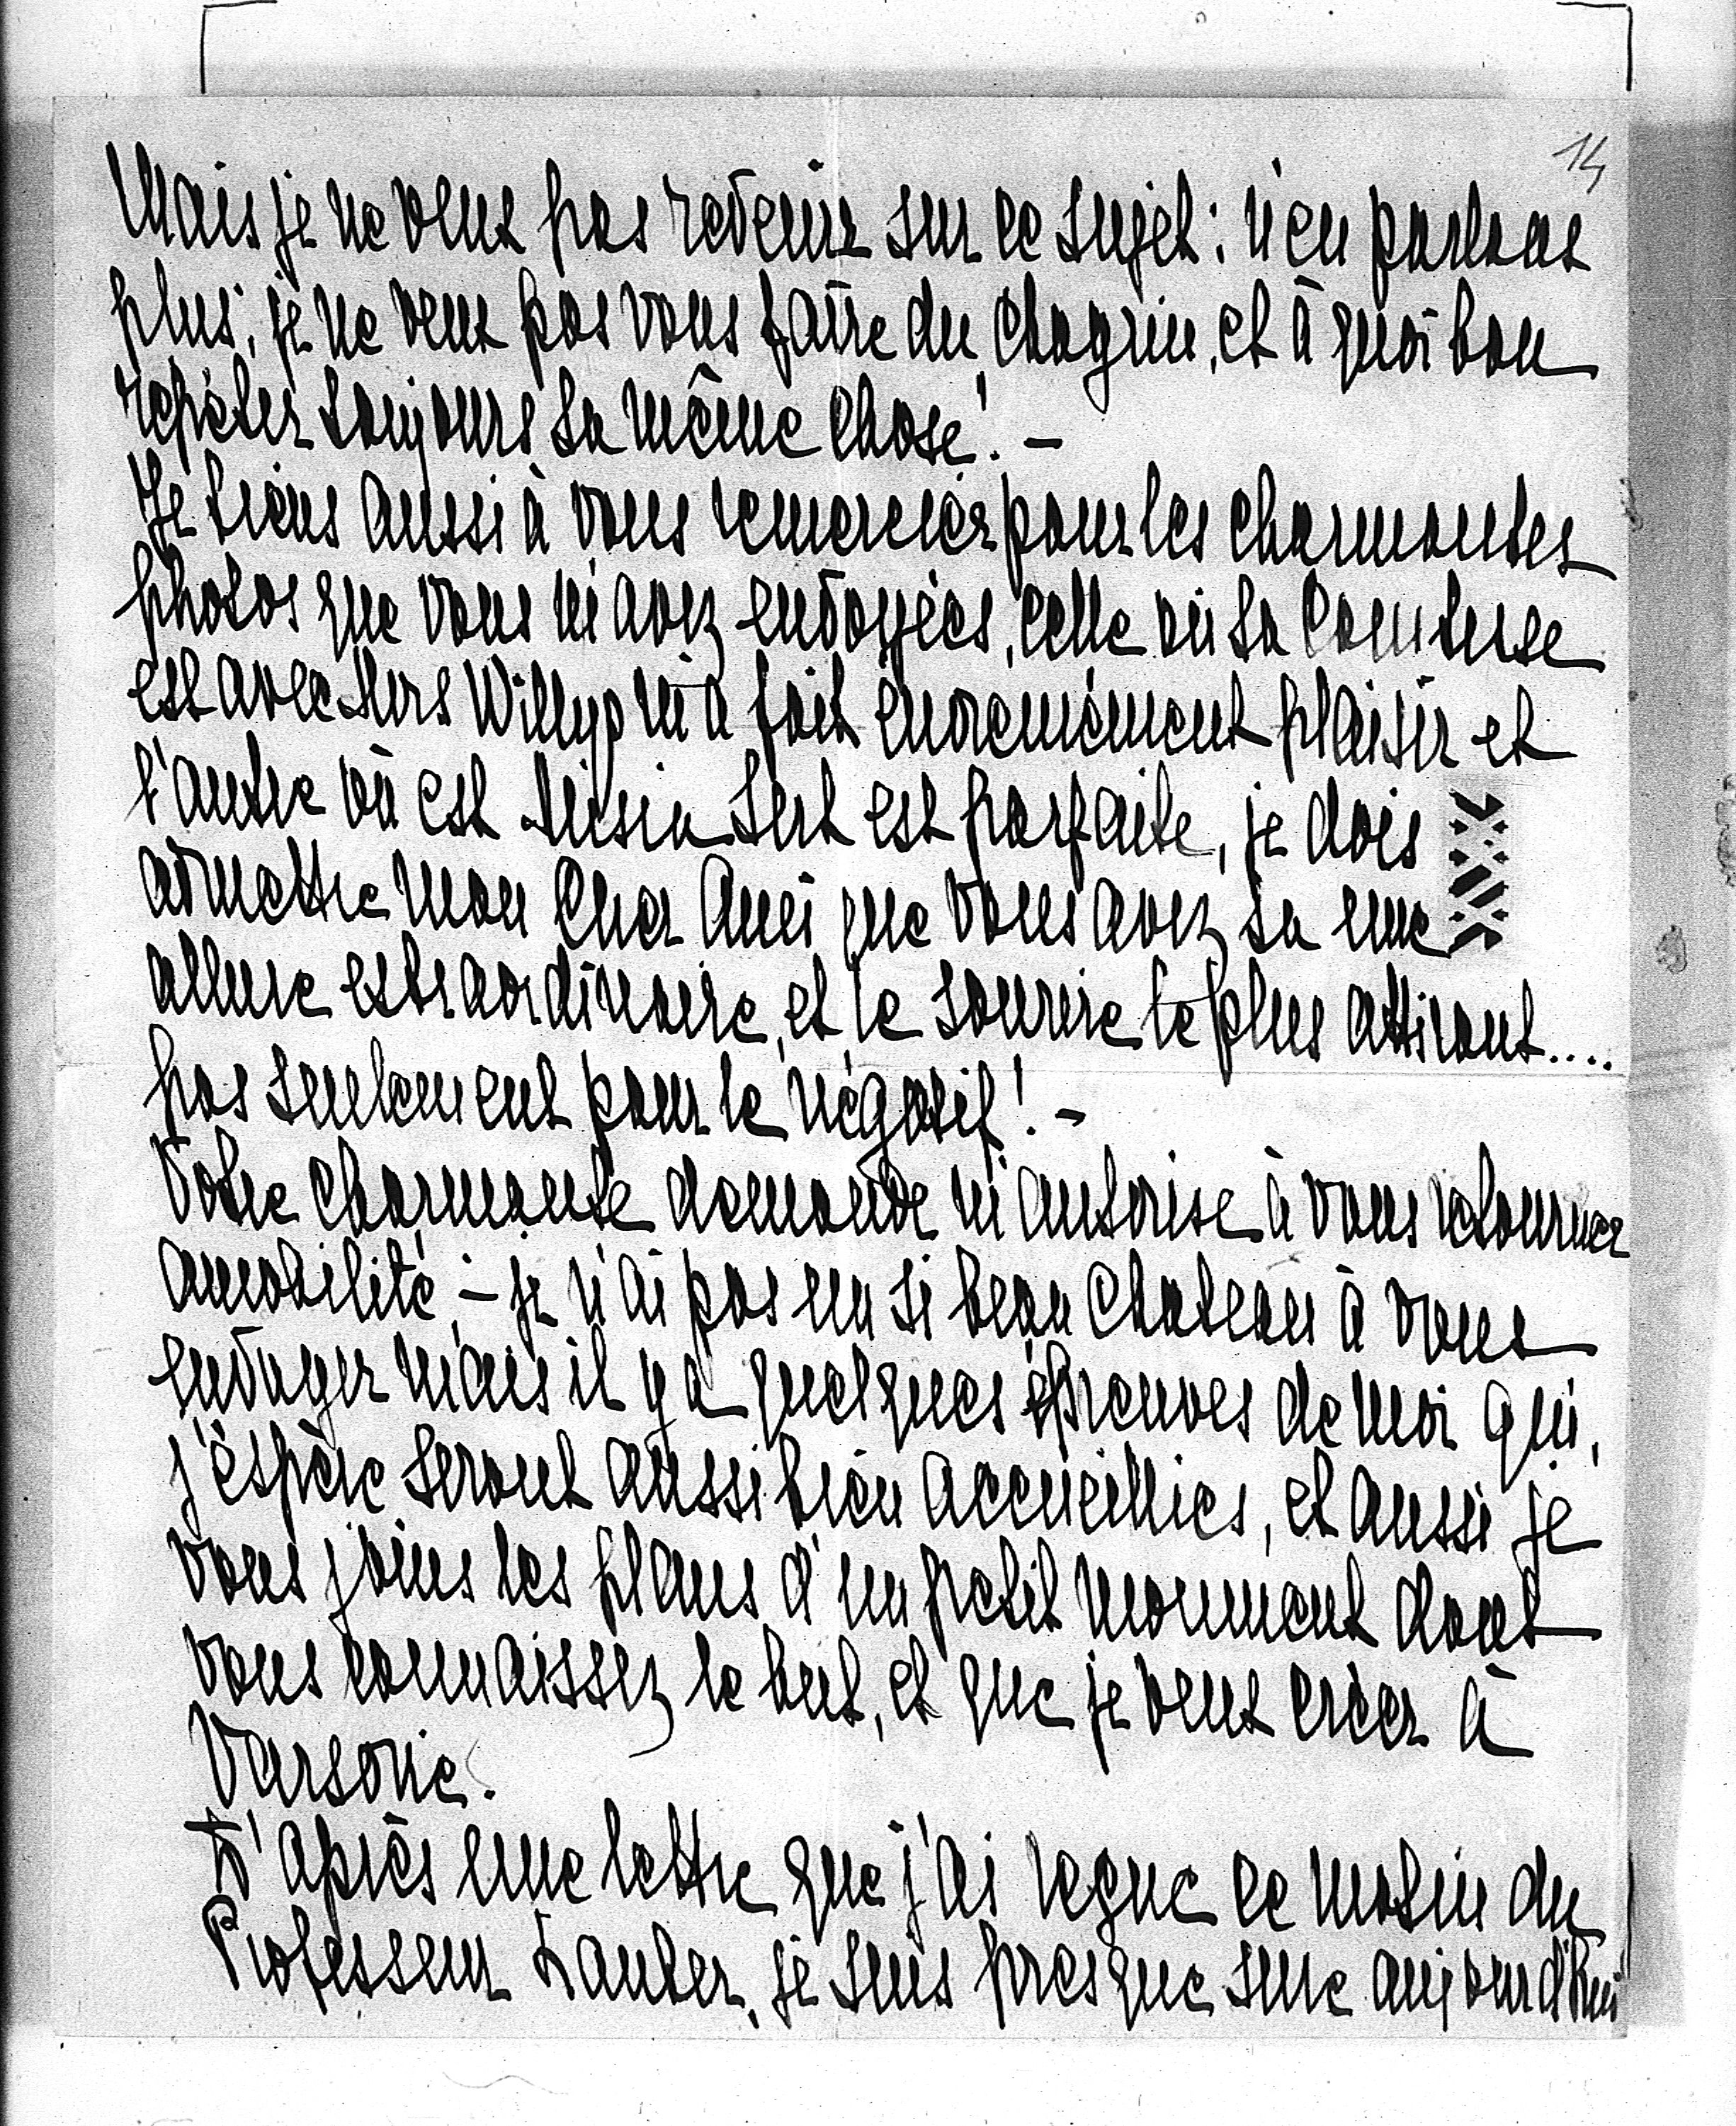 14
Mais je ne veux pas revenir sur ce sujet: n'en parlons
plus; je ne veux pas vous faire du chagrin, et à quoi bon
repéter toujours la même chose! –
Je tiens aussi à vous remercier pour les charmantes
photos que vous m'avez envoyées, celle où la Comtesse
est avec Mrs Willys m'a fait énormément plaisir et
l'autre où est Misia Sert est parfaite, je dois
admettre mon Cher Ami que vous avez là une
allure extraordinaire, et le sourire le plus attirant....
pas seulement pour le négatif! –
Votre charmante demande m'autorise à vous retourner
amabilité; – je n'ai pas un si beau chateau à vous
envoyer mais il y a quelques épreuves de moi qui,
j'éspère seront aussi bien accueillies, et aussi je
vous joins les plans d'un petit monument dont
vous connaissez le but, et que je veux créer à
Varsovie.
D'après une lettre que j'ai reçue ce matin du
Professeur Lauber, je suis presque sure aujourd'hui